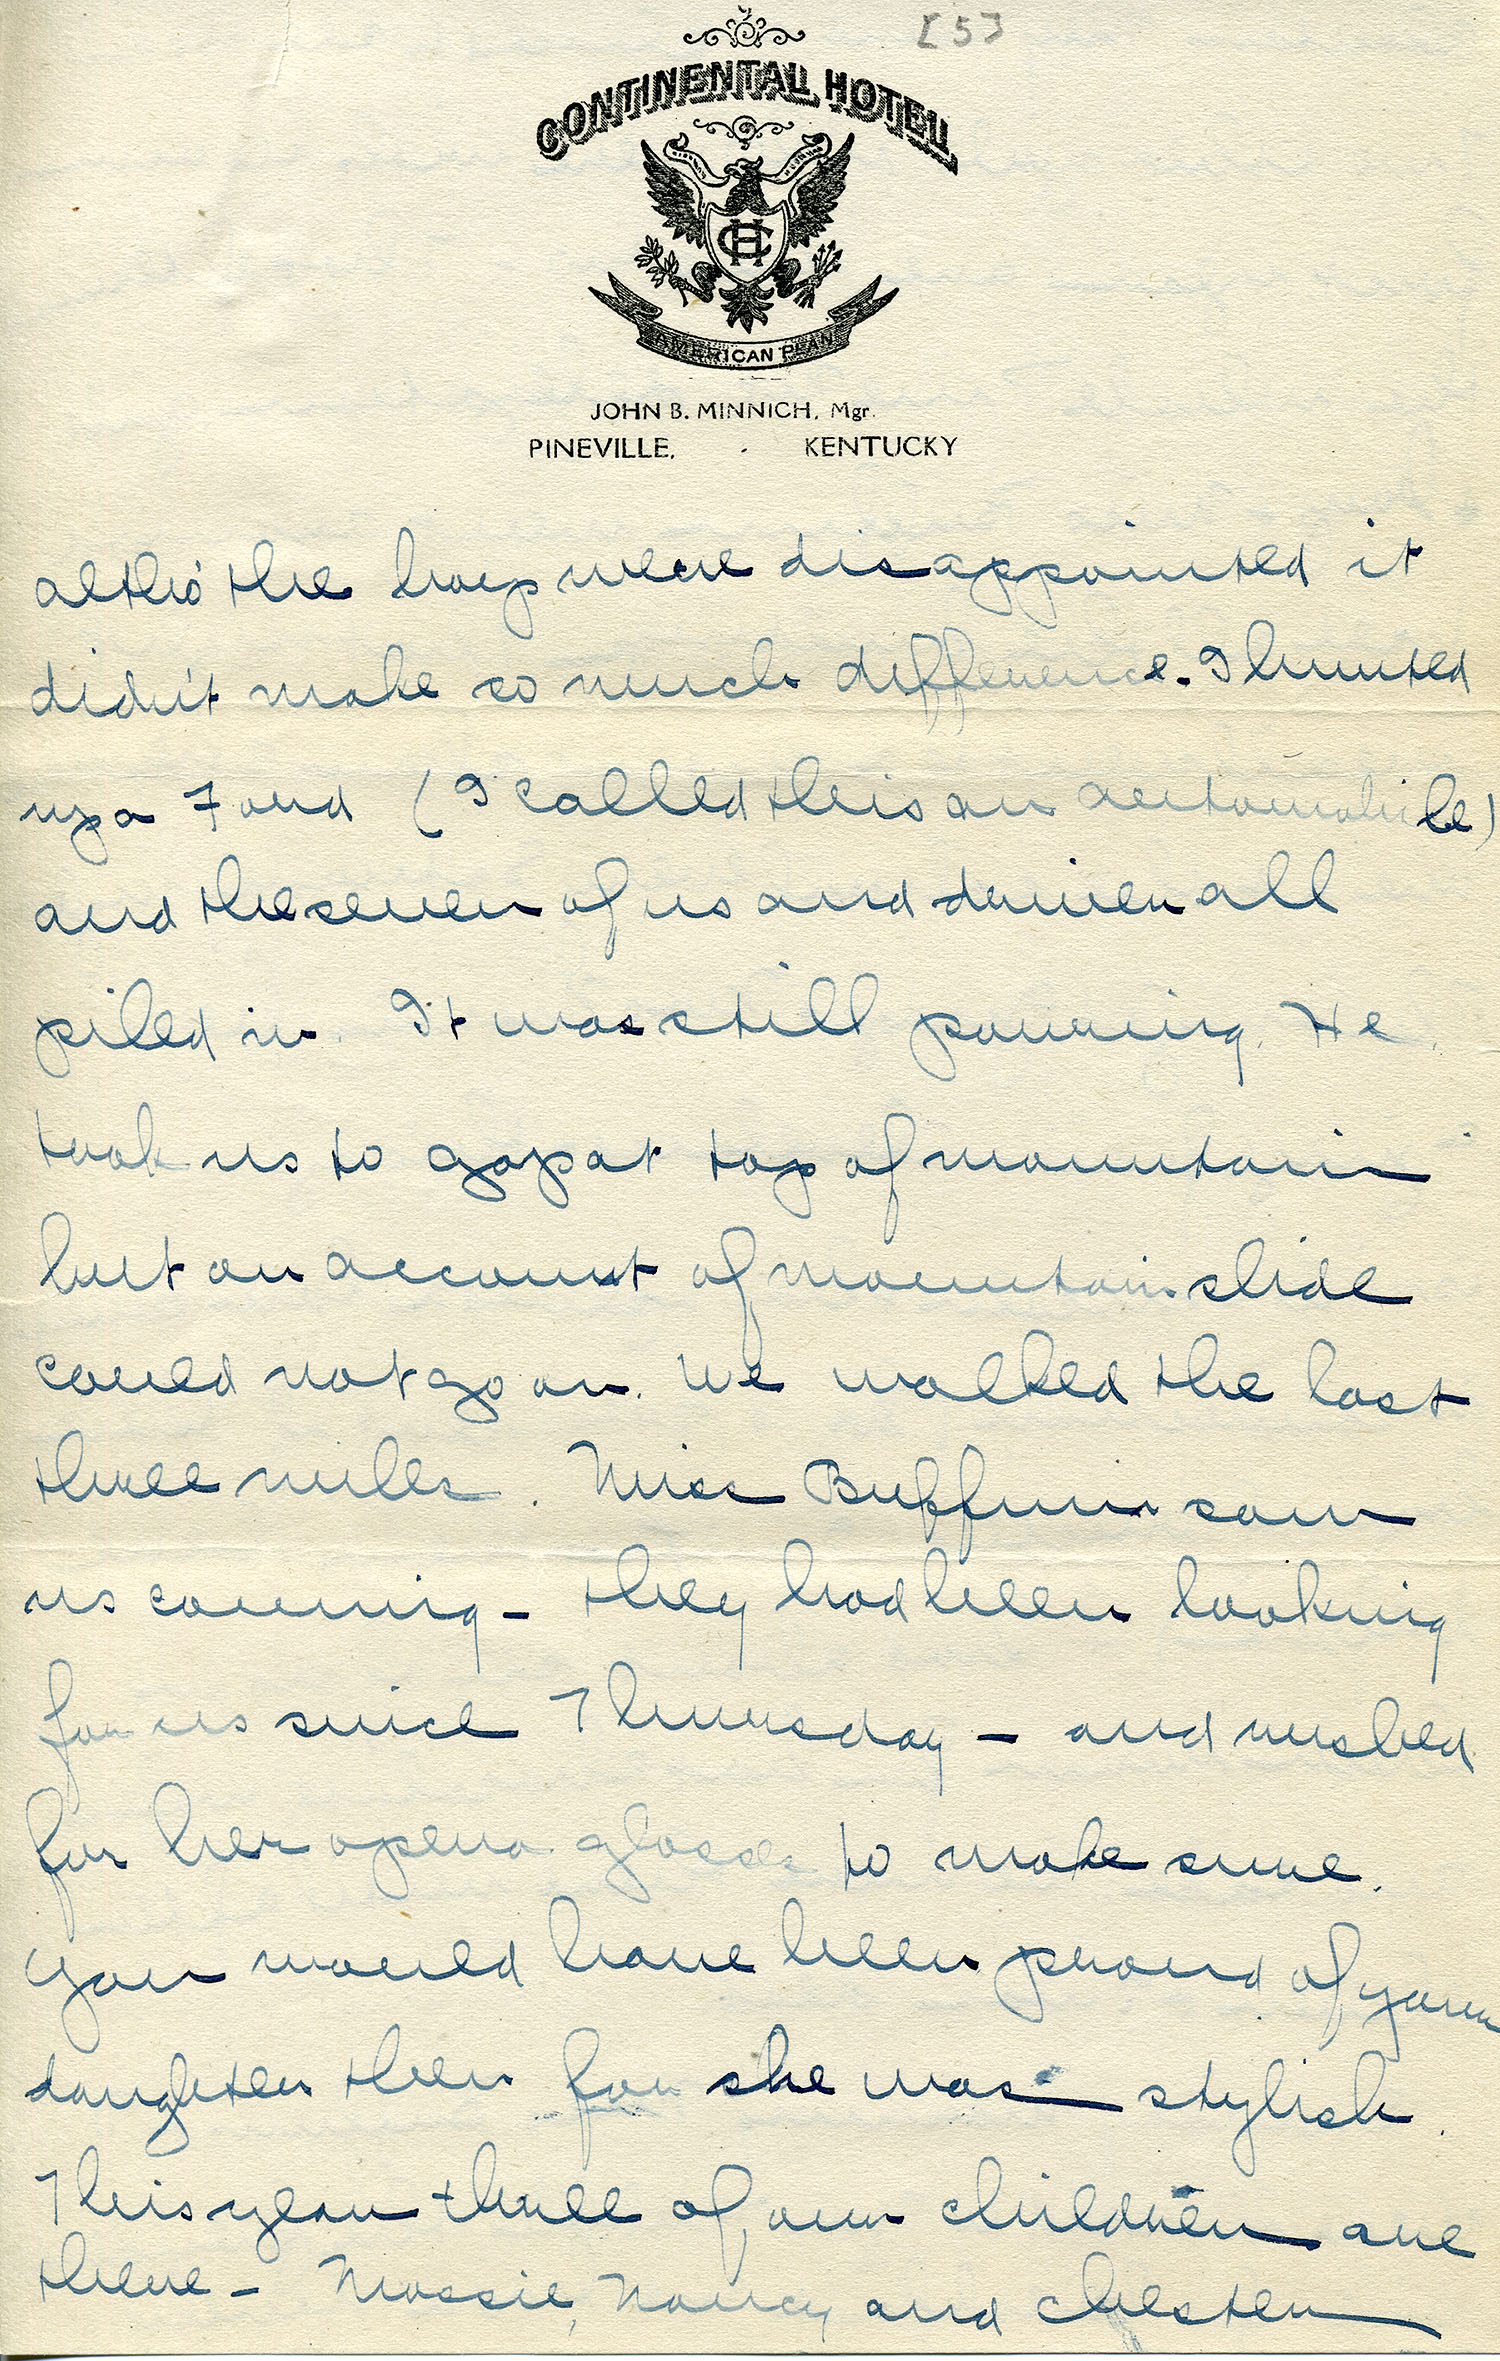 [5]
CONTINENTAL HOTEL
HC
AMERICAN PLAN
JOHN B. MINNICH, Mgr.
PINEVILLE, - KENTUCKY
altho' the boys were disappointed it
didn't make so much difference. I hunted
up a Ford (I called this an automobile)
and the seven of us and driver all
piled in. It was still pouring. He
took us to gap at top of mountain
but on account of mountain slide
could not go on. We walked the last
three miles. Miss Buffum saw
us coming - they had been looking
for us since Thursday - and rushed
for her opera glasses to make sure.
You would have been proud of your
daughter then for she was stylish.
This year three of our children are
there - Massie, Nancy and Chester